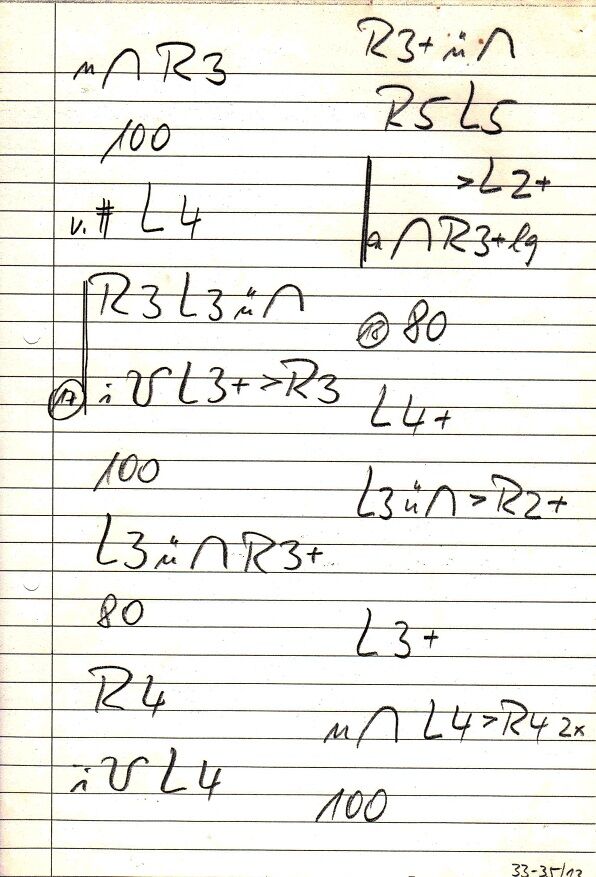 n∩ R3
100
v. # L4
R3 L3 ü∩
17 i ʊ L3+ >R3
100
L3 ü ∩ R3+
80
R4
i ʊ L4
R3+ ü∩
R5 L5
>L2+
a ∩ R3+ lg
18 80
L4+
L3 ü∩ >R2+
L3+
n∩ L4 >R4 2x
100